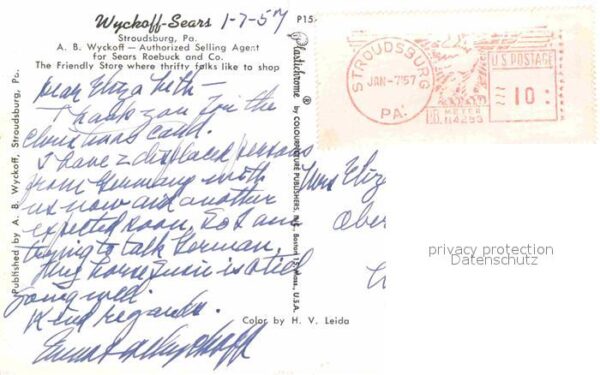 Wyckoff-Sears 1-7-57
Stroudsburg, Pa.
A. B. Wyckoff — Authorized Selling Agent
for Sears Roebuck and Co.
The Friendly Store where thrifty folks like to shop
Dear Elizabeth —
Thank you for the
Christmas card.
I have 2 displaced persons
from Germany with
us now and another
expected soon. So I am
trying to talk German.
My horse is still
going well.
Kind regards.
Wyckoff
Color by H. V. Leida
Published by A. B. Wyckoff, Stroudsburg, Pa.
P15
Plastichrome ® by COLOURPICTURE PUBLISHERS, INC., Boston 15, Mass., U.S.A.
STROUDSBURG
JAN-7'57
PA.
U.S. POSTAGE
10
METER
Miss
privacy protection
Datenschutz